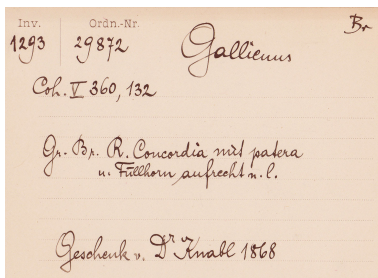 Inv. Ordn.-Nr. Br
1293 29872 Gallienus
Coh. V 360, 132
Gr. Br. R. Concordia mit patera
u. Füllhorn aufrecht n. l.
Geschenk v. Dr Knabl 1868